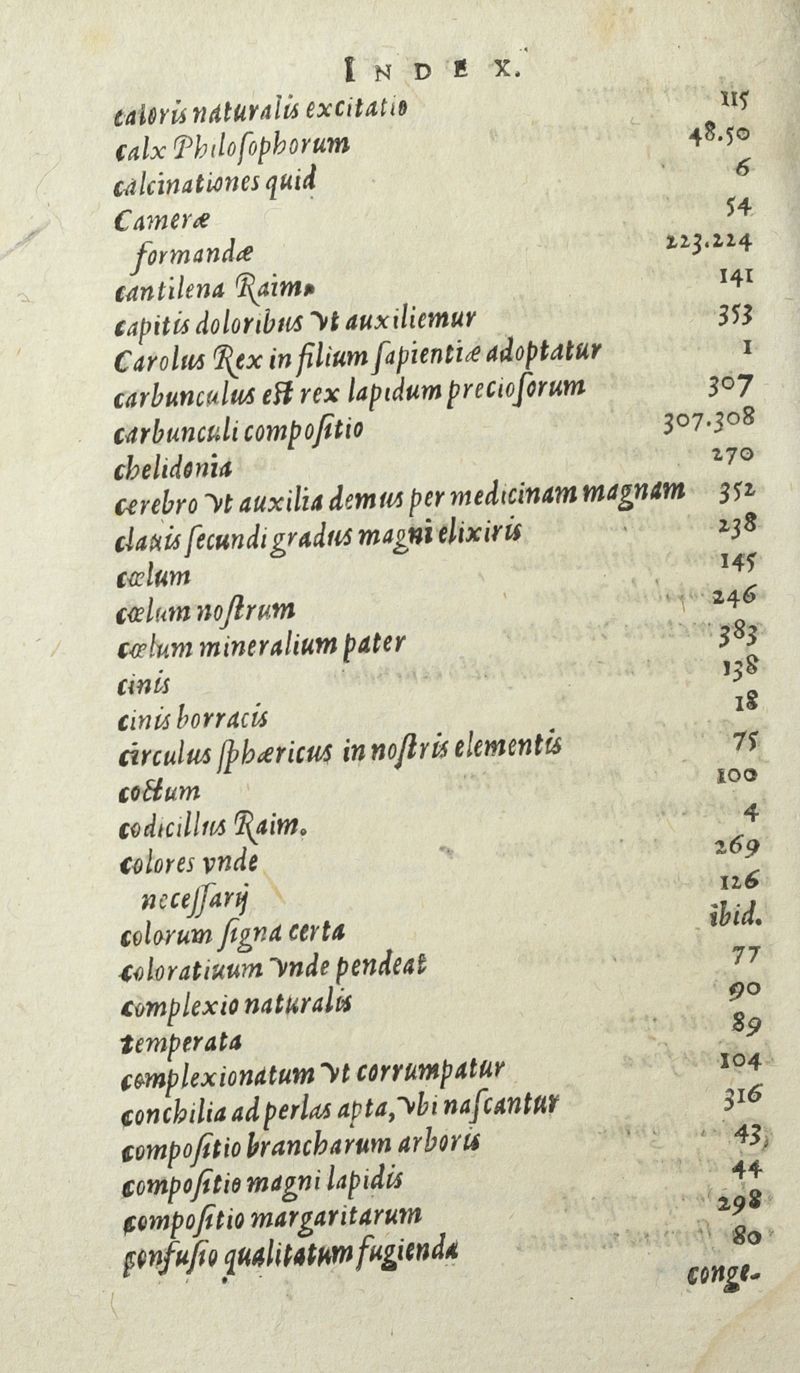 INDEX.
caloris naturalis excitatio 115
calx Philoſophorum 48.50
calcinationes quid 6
Cameræ 54
formandæ 223.224
cantilena Raim. 141
capitis doloribus vt auxiliemur 353
Carolus Rex in filium ſapientiæ adoptatur 1
carbunculus eſt rex lapidum precioſorum 307
carbunculi compoſitio 307.308
chelidonia 270
cerebro vt auxilia demus per medicinam magnam 352
clauis ſecundi gradus magni elixiris 238
cœlum 145
cœlum noſtrum 246
cœlum mineralium pater 383
cinis 138
cinis borracis 18
circulus ſphæricus in noſtris elementis 75
coctum 100
codicillus Raim. 4
colores vnde 269
neceſſarij 126
colorum ſigna certa ibid.
coloratiuum vnde pendeat 77
complexio naturalis 90
temperata 89
complexionatum vt corrumpatur 104
conchilia ad perlas apta, vbi naſcantur 316
compoſitio brancharum arboris 43.
compoſitio magni lapidis 44
compoſitio margaritarum 298
confuſio qualitatum fugienda 80
conge-